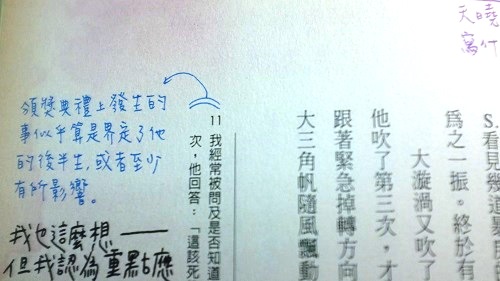 天曉
什
領獎典禮上發生的
事似乎算是界定了他
的後半生,或者至少
有所影響。
我也這麼想——
但我認為重點應
S.看見幾道
為之一振。終於有
大漩渦又吹了
他吹了第三次，才
跟著緊急掉轉方向
大三角帆隨風飄動
11 我經常被問及是否知道
次，他回答：「這該死